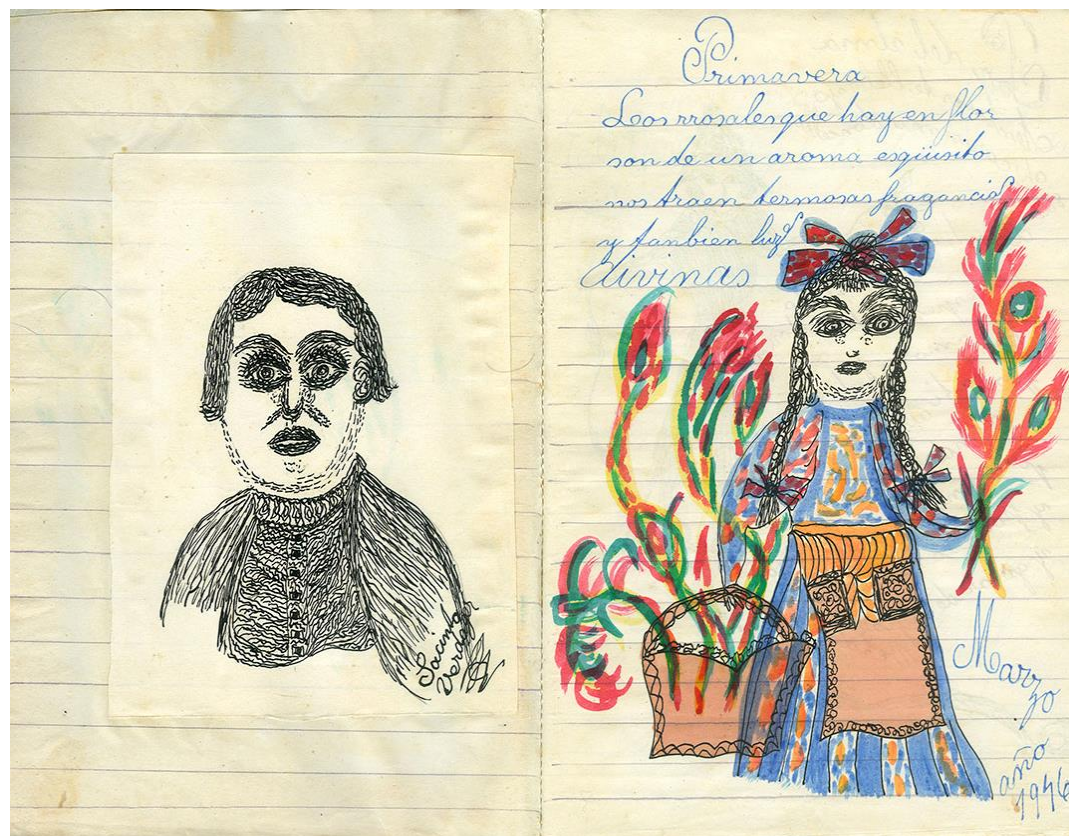 Jacinto
Verdaguer
Primavera
Los rrosales que hay en flor
son de un aroma esqüisito
nos traen termosas fragancias
y tanbien luz
divinas
Marzo
año
1946